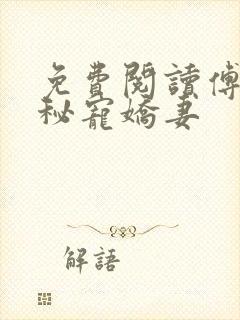 免費閱讀傅
秘寵嬌妻
解語